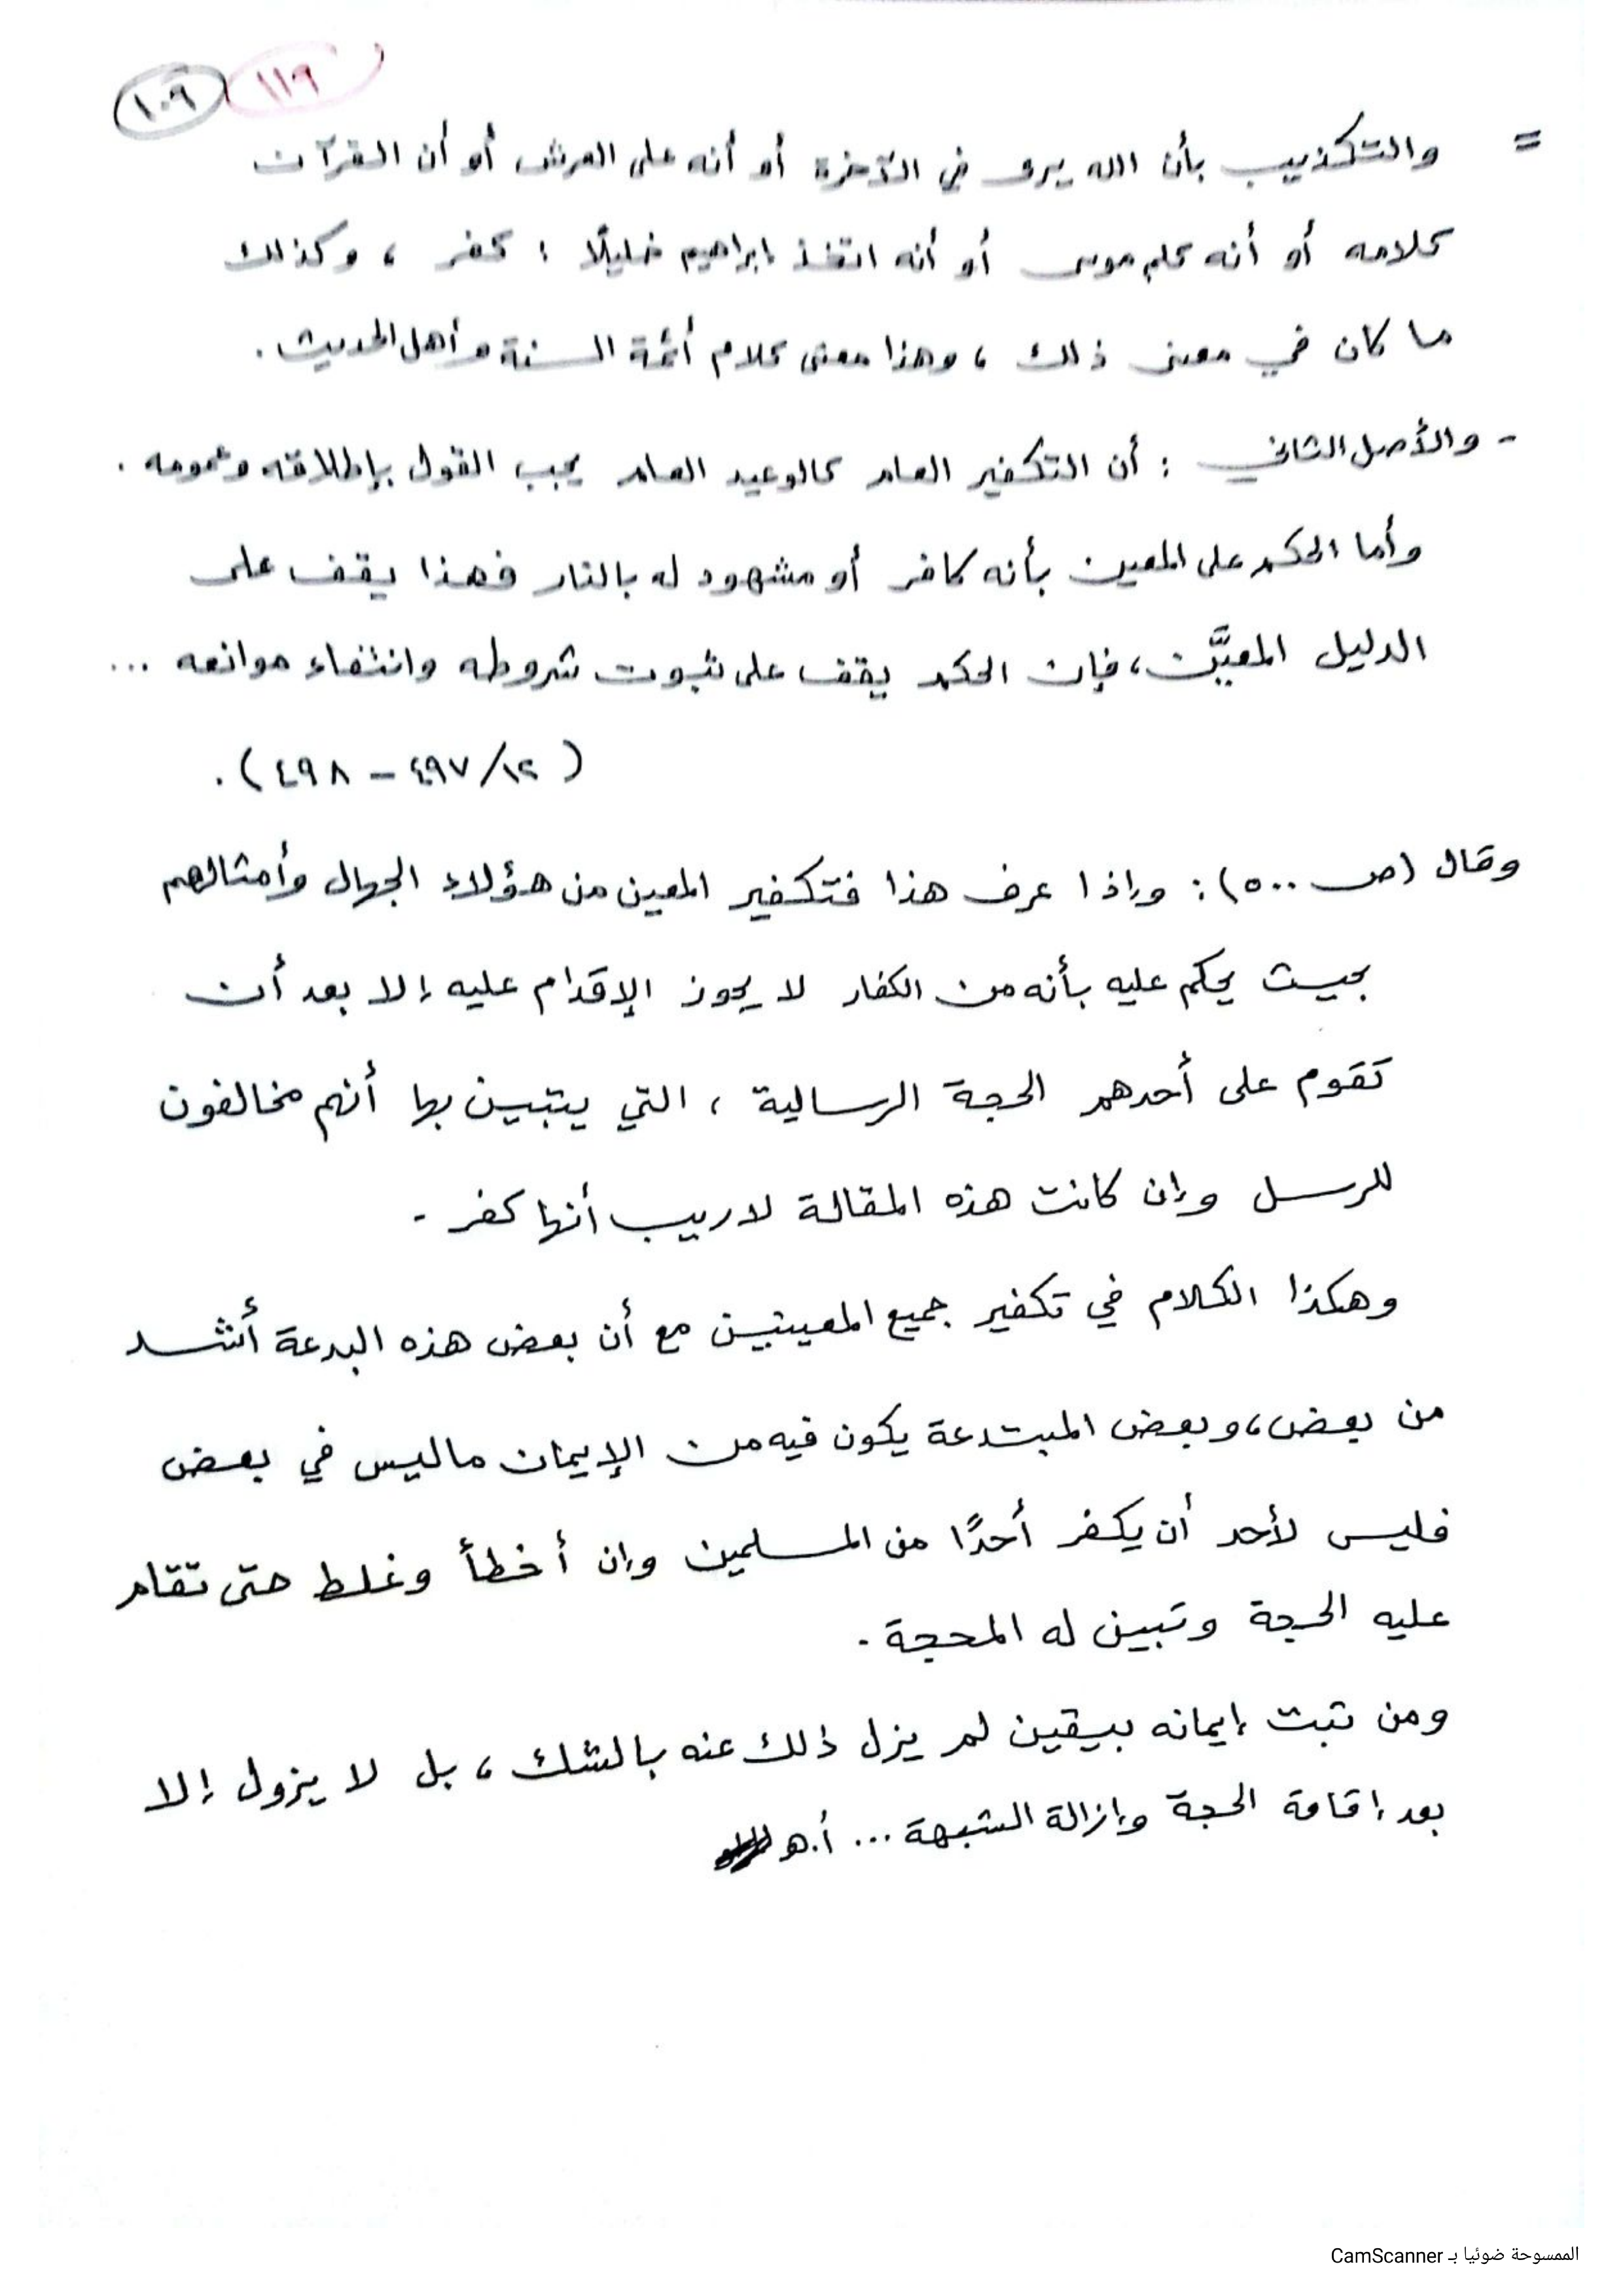 ١٠٩ ١١٩
= والتكذيب بأن الله يرى في الآخرة أو أنه على العرش أو أن القرآن
كلامه أو أنه كلم موسى أو أنه اتخذ إبراهيم خليلًا : كفر ، وكذلك
ما كان في معنى ذلك ، وهذا معنى كلام أئمة السنة وأهل الحديث .
- والأصل الثاني : أن التكفير العام كالوعيد العام يجب القول بإطلاقه وعمومه .
وأما الحكم على المعين بأنه كافر أو مشهود له بالنار فهذا يقف على
الدليل المعيَّن ، فإن الحكم يقف على ثبوت شروطه وانتفاء موانعه ...
( ١٢/ ٤٩٧ - ٤٩٨ ) .
وقال (ص ٥٠٠) : وإذا عرف هذا فتكفير المعين من هؤلاء الجهال وأمثالهم
بحيث يحكم عليه بأنه من الكفار لا يجوز الإقدام عليه إلا بعد أن
تقوم على أحدهم الحجة الرسالية ، التي يتبين بها أنهم مخالفون
للرسل وإن كانت هذه المقالة لا ريب أنها كفر .
وهكذا الكلام في تكفير جميع المعينين مع أن بعض هذه البدعة أشد
من بعض ، وبعض المبتدعة يكون فيه من الإيمان ما ليس في بعض
فليس لأحد أن يكفر أحدًا من المسلمين وإن أخطأ وغلط حتى تقام
عليه الحجة وتبين له المحجة .
ومن ثبت إيمانه بيقين لم يزل ذلك عنه بالشك ، بل لا يزول إلا
بعد إقامة الحجة وإزالة الشبهة ... أ.هـ
الممسوحة ضوئيا بـ CamScanner